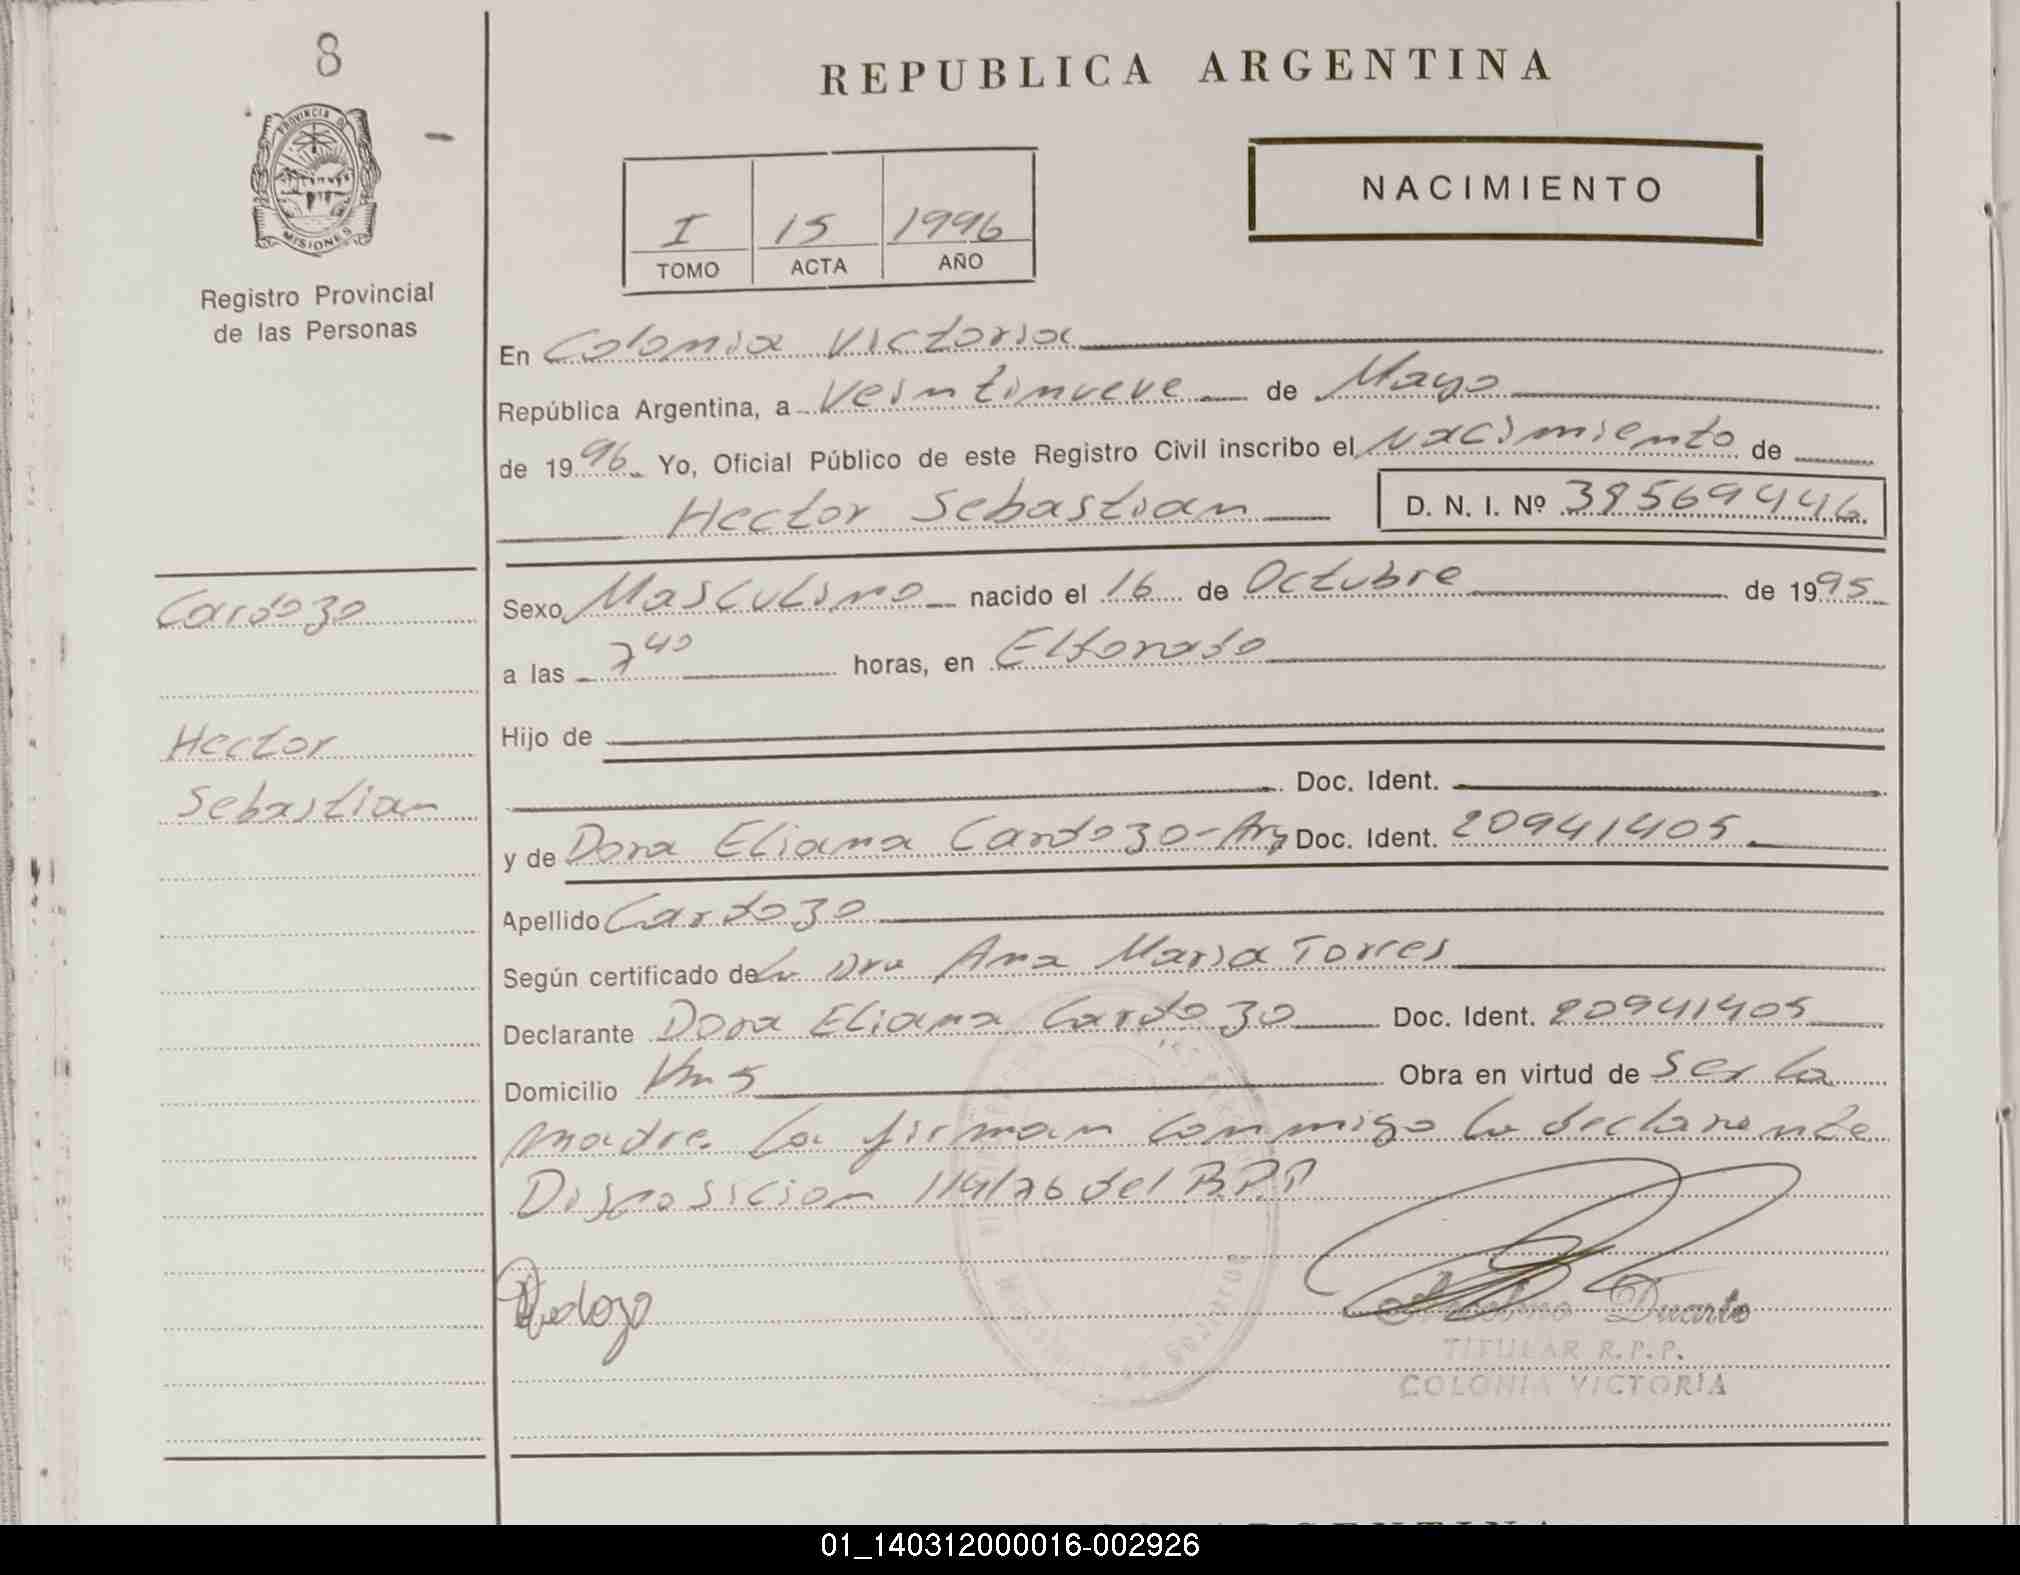 8
PROVINCIA DE
MISIONES
Registro Provincial
de las Personas
REPUBLICA ARGENTINA
NACIMIENTO
I 15 1996
TOMO ACTA AÑO
En Colonia Victoria
República Argentina, a Veintinueve de Mayo
de 1996 Yo, Oficial Público de este Registro Civil inscribo el nacimiento de
Hector Sebastian D. N. I. Nº 39569446
Cardozo
Hector
Sebastian
Sexo Masculino nacido el 16 de Octubre de 1995
a las 7 40 horas, en Eldorado
Hijo de
Doc. Ident.
y de Dora Eliana Cardozo-Arg Doc. Ident. 20941405
Apellido Cardozo
Según certificado de La Dra Ana Maria Torres
Declarante Dora Eliana Cardozo Doc. Ident. 20941405
Domicilio Km 5 Obra en virtud de ser la
madre. La firman conmigo la declarante
Disposicion 114/76 del R.P.P
Duarte
TITULAR R.P.P.
COLONIA VICTORIA
01_140312000016-002926